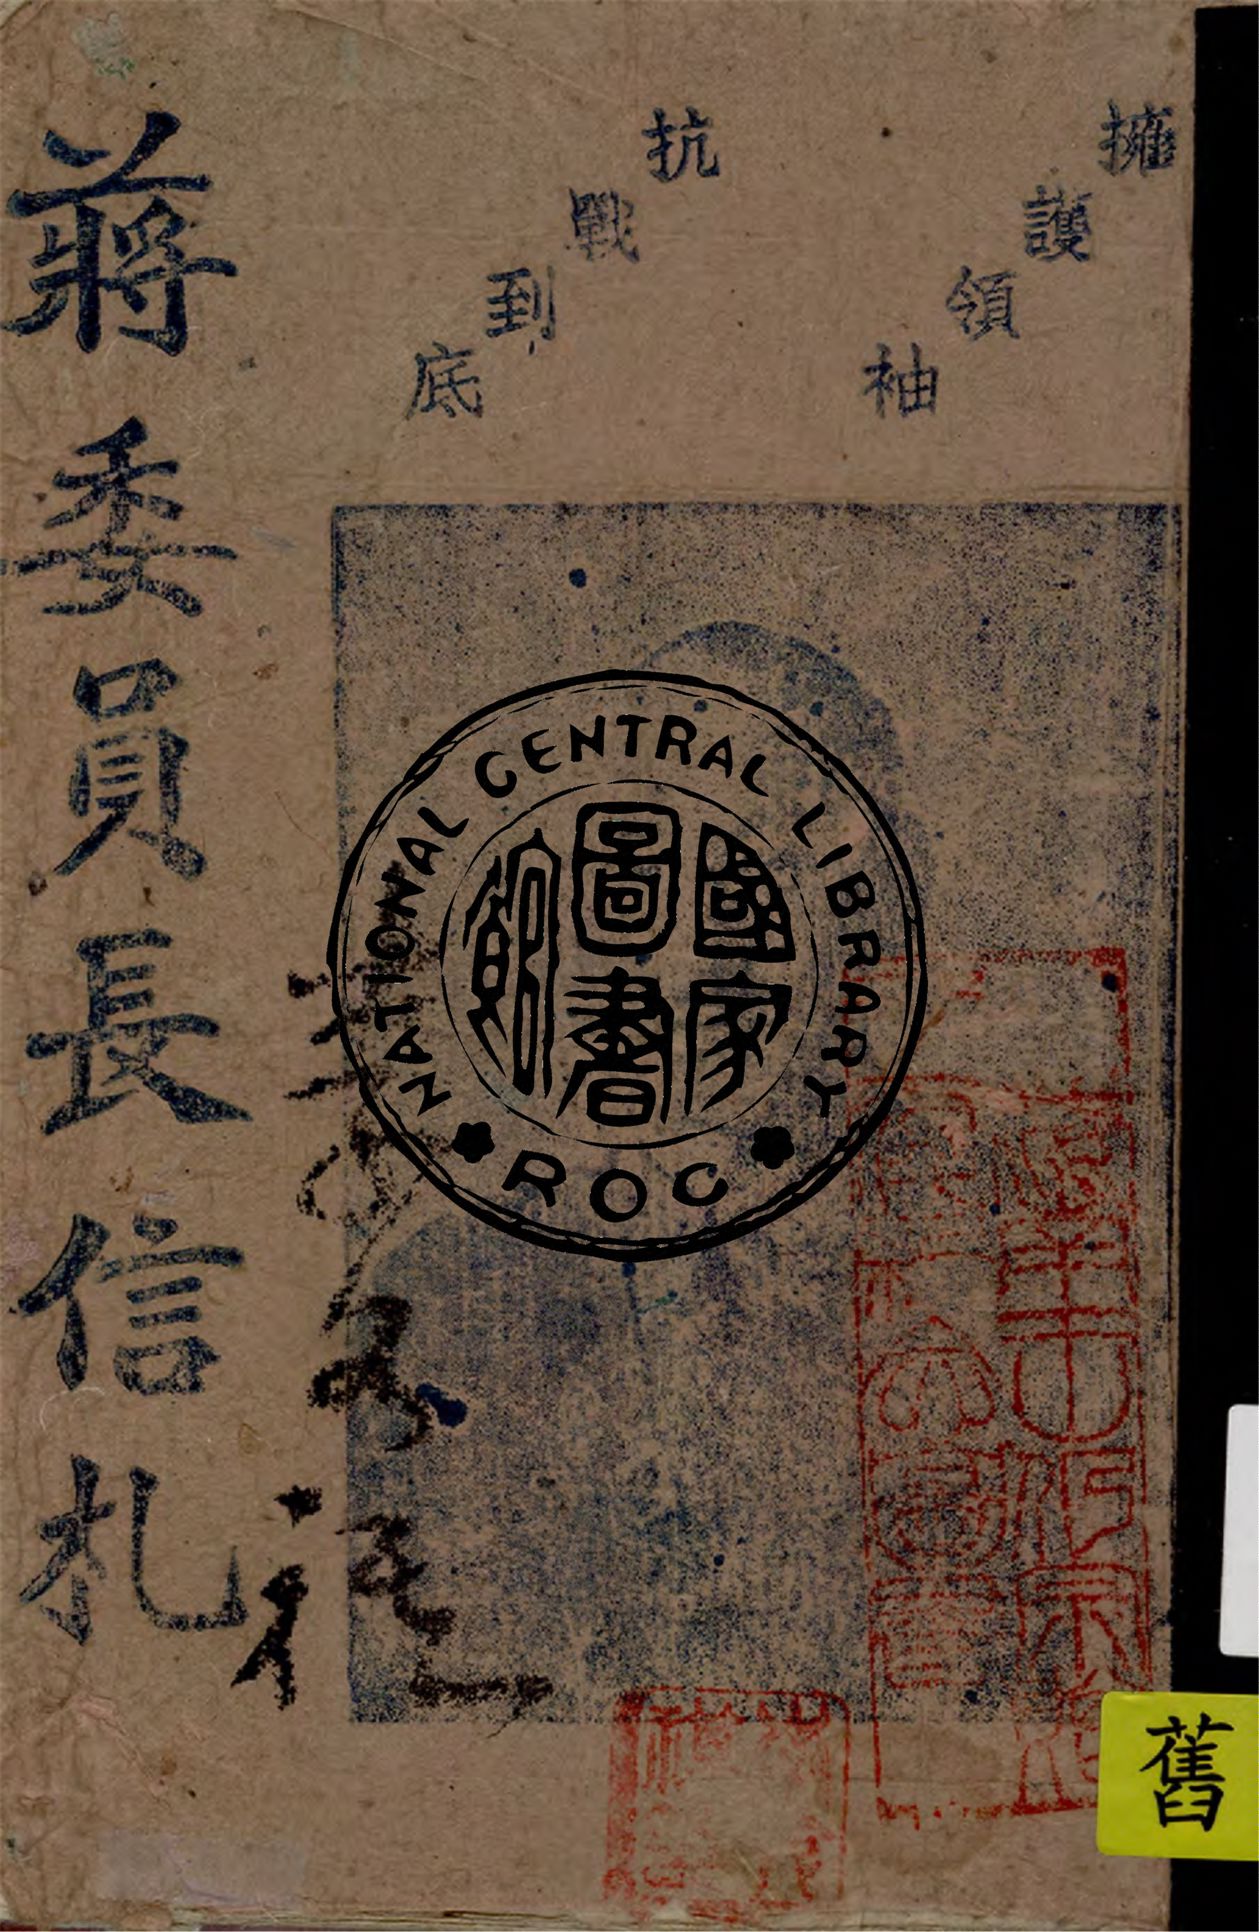 擁護領袖
抗戰到底
蔣委員長信札
NATIONAL CENTRAL LIBRARY
國家圖書館
ROC
舊